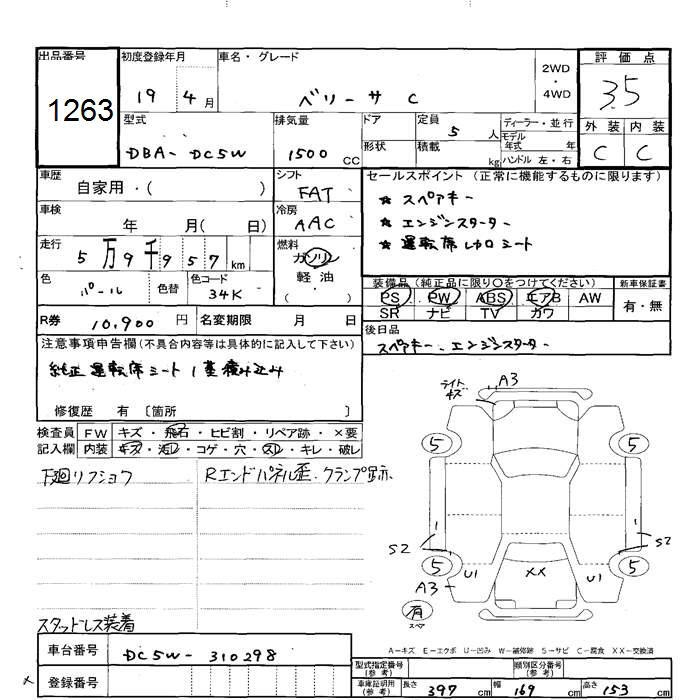 出品番号 初度登録年月 車名・グレード 2WD・4WD 評価点
1263 19 4月 ベリーサ C 3.5
型式 排気量 ドア 定員 5人 ディーラー・並行 外装 内装
モデル年式 年
DBA-DC5W 1500CC 形状 積載 kg ハンドル 左・右 C C
車歴 シフト セールスポイント (正常に機能するものに限ります)
自家用・( ) FAT ★ スペアキー
車検 冷房 ★ エンジンスターター
年 月( 日) AAC ★ 運転席レカロシート
走行 燃料
5万9千957km ガソリン
色 色替 色コード 軽油 装備品 (純正品に限り○をつけてください) 新車保証書
パール 34K ( ) PS PW ABS エアB AW 有・無
SR ナビ TV カワ
R券 10,900円 名変期限 月 日 後日品
注意事項申告欄 (不具合内容等は具体的に記入して下さい) スペアキー、エンジンスターター
純正運転席シート1基積み込み
修復歴 有 〔箇所 〕
検査員 FW キズ・飛石・ヒビ割・リペア跡・×要
記入欄 内装 キズ・汚レ・コゲ・穴・スレ・キレ・破レ
下廻リフショウ Rエンドパネル歪・クランプ跡
ライトキズ A3
5 5
S2 S2
5 5
A3 U1 XX U1
有
スペア
スタッドレス装着
A-キズ E-エクボ U-凹み W-補修跡 S-サビ C-腐食 XX-交換済
車台番号 DC5W-310298
型式指定番号(参考) 類別区分番号(参考)
登録番号 車庫証明用(参考) 長さ 397cm 幅 169cm 高さ 153cm